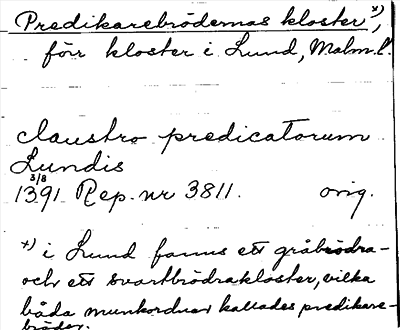 Predikarebrödernas kloster x),
förr kloster i Lund, Malm.l.
claustro predicatorum
Lundis
3/8
1391 Rep. nr 3811. orig.
x) i Lund fanns ett gråbrödra-
och ett svartbrödrakloster, vilka
båda munkordnar kallades predikare-
bröder.